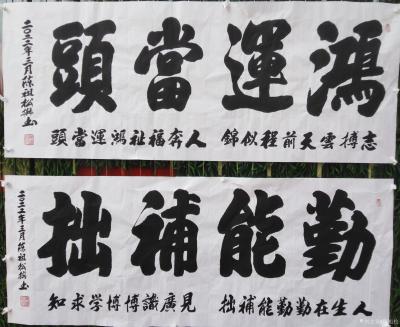 鴻運當頭
志搏雲天前程似錦 人奔福祉鴻運當頭
二〇二二年三月 祖松 书
勤能補拙
人生在勤勤能補拙 見廣識博博學求知
二〇二二年三月 祖松 书